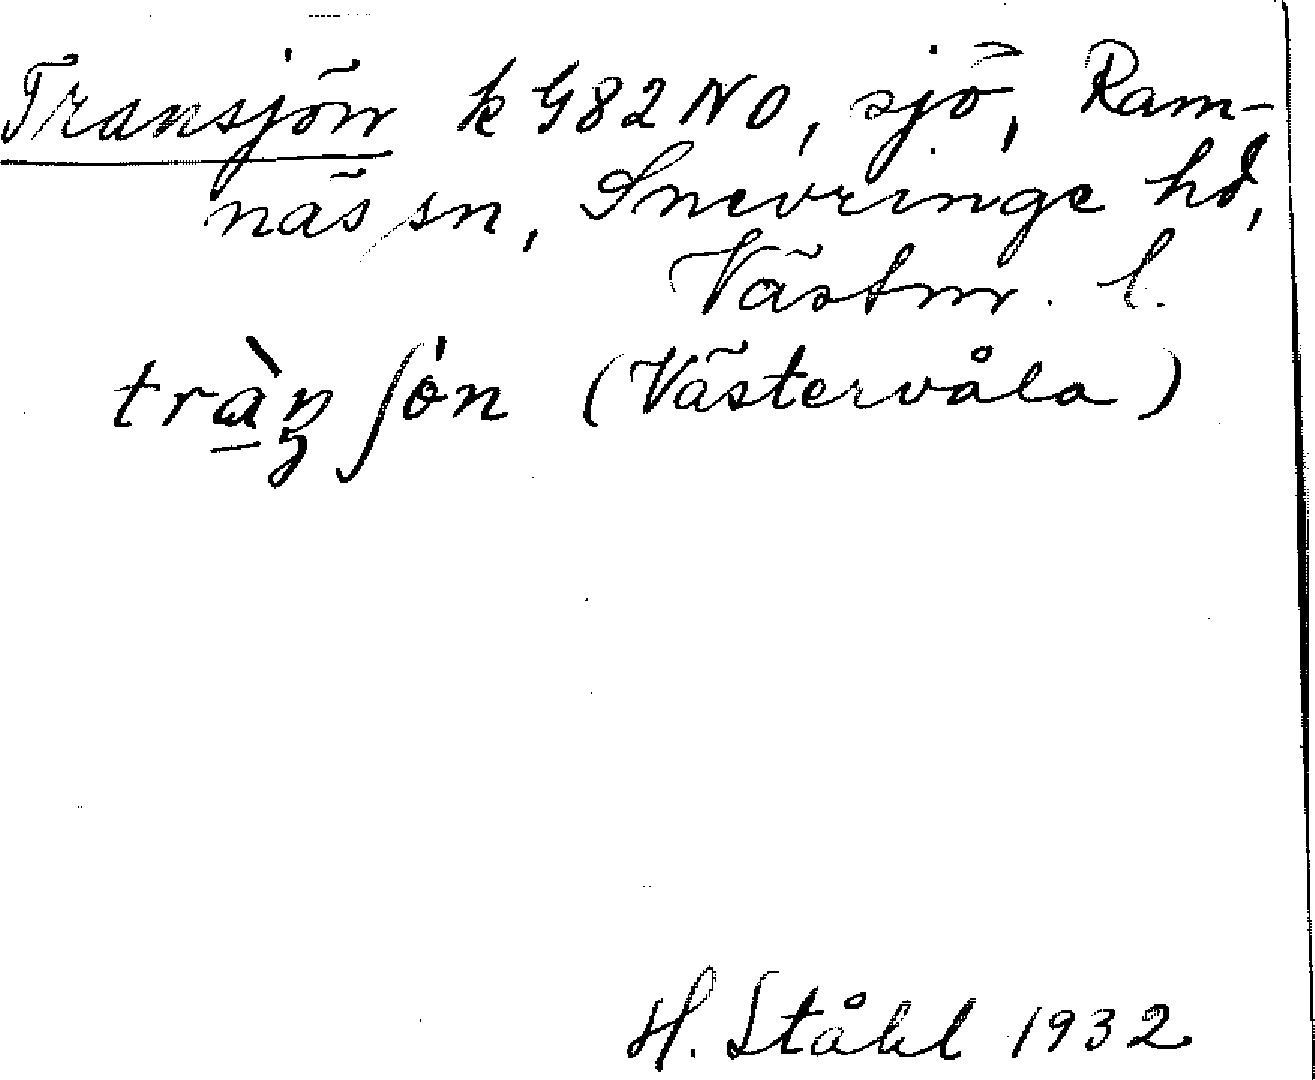 Transjön k G82 NO, sjö, Ram-
näs sn, Snevringe hd,
Västm. l.
trànʃón (Västervåla)
H. Ståhl 1932